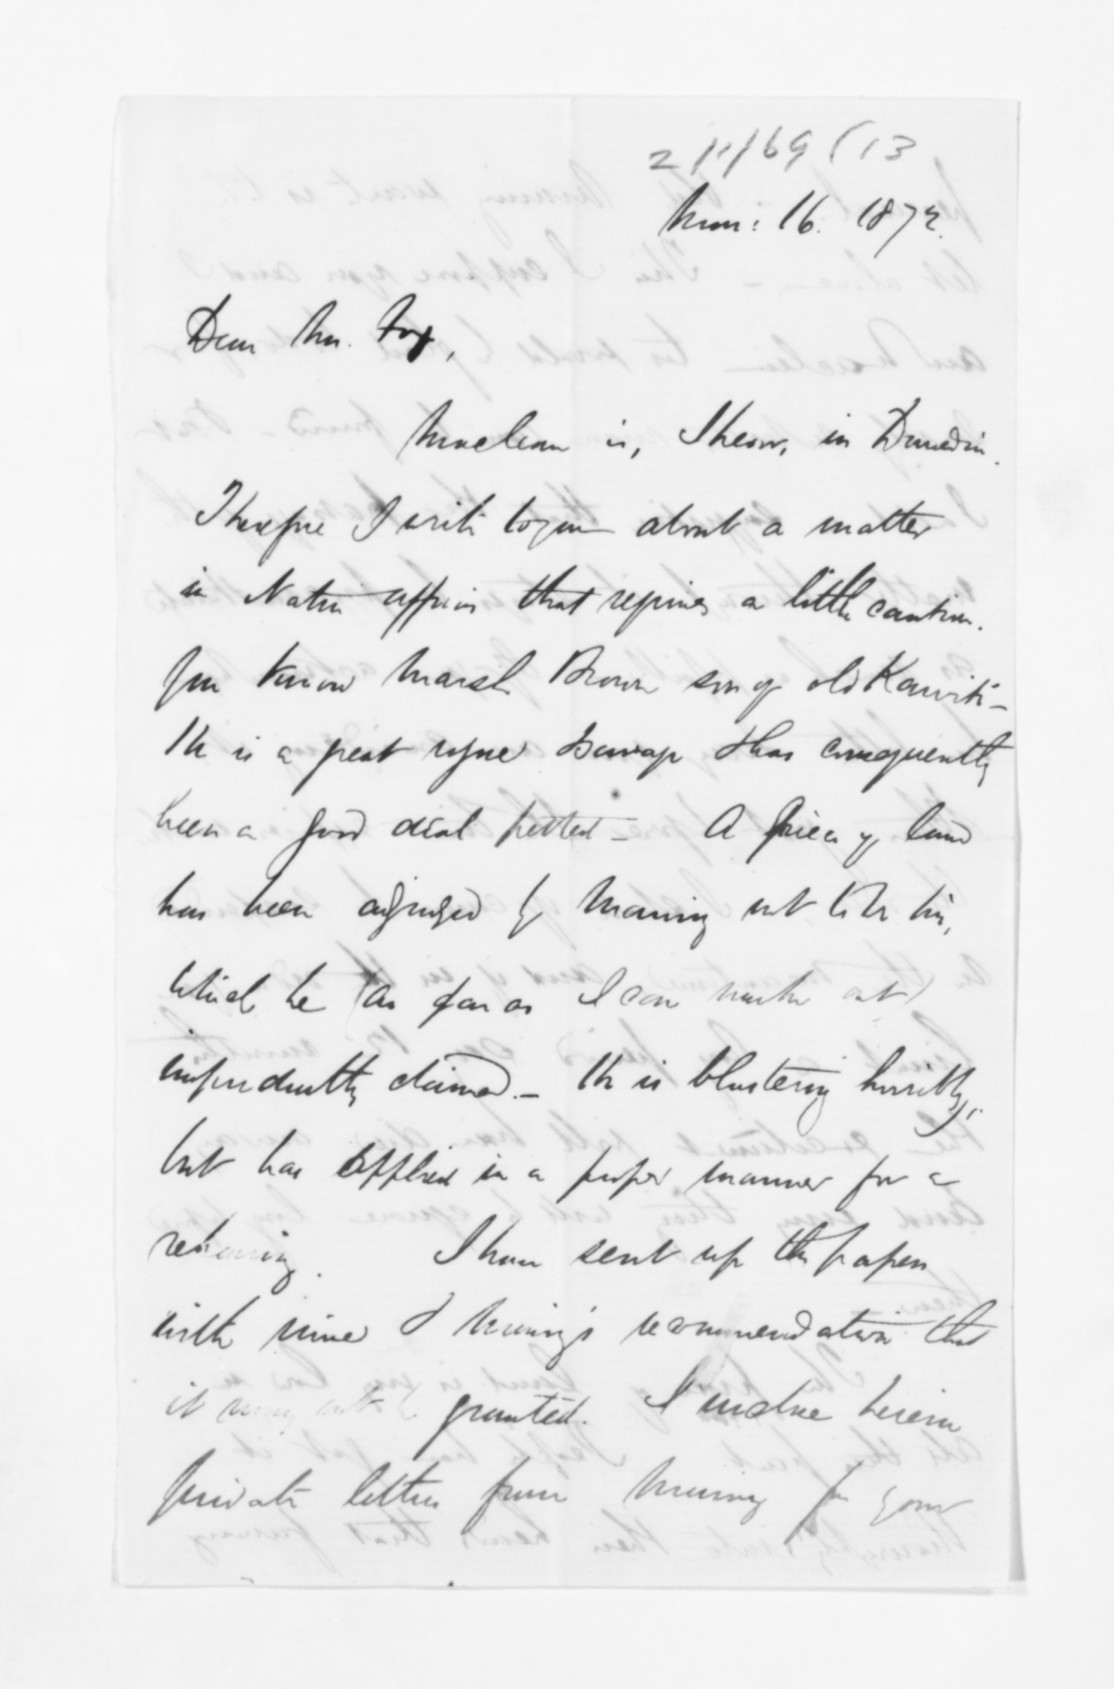 2/1/69 (13
Mar: 16. 1872.
Dear Mr. Fox,
Maclean is, I hear, in Dunedin.
Therefore I write to you about a matter
in Native affairs that requires a little caution.
You know Marsh Brown son of old Kawiti –
He is a great rogue & has consequently
been a good deal petted – A piece of land
has been adjudged by Maning not to be his,
which he (as far as I can make out)
impudently claimed. – He is blustering horribly,
but has applied in a proper manner for a
rehearing. I have sent up the papers
with mine & Maning's recommendation that
it may not be granted. I enclose herein
private letter from Maning for your